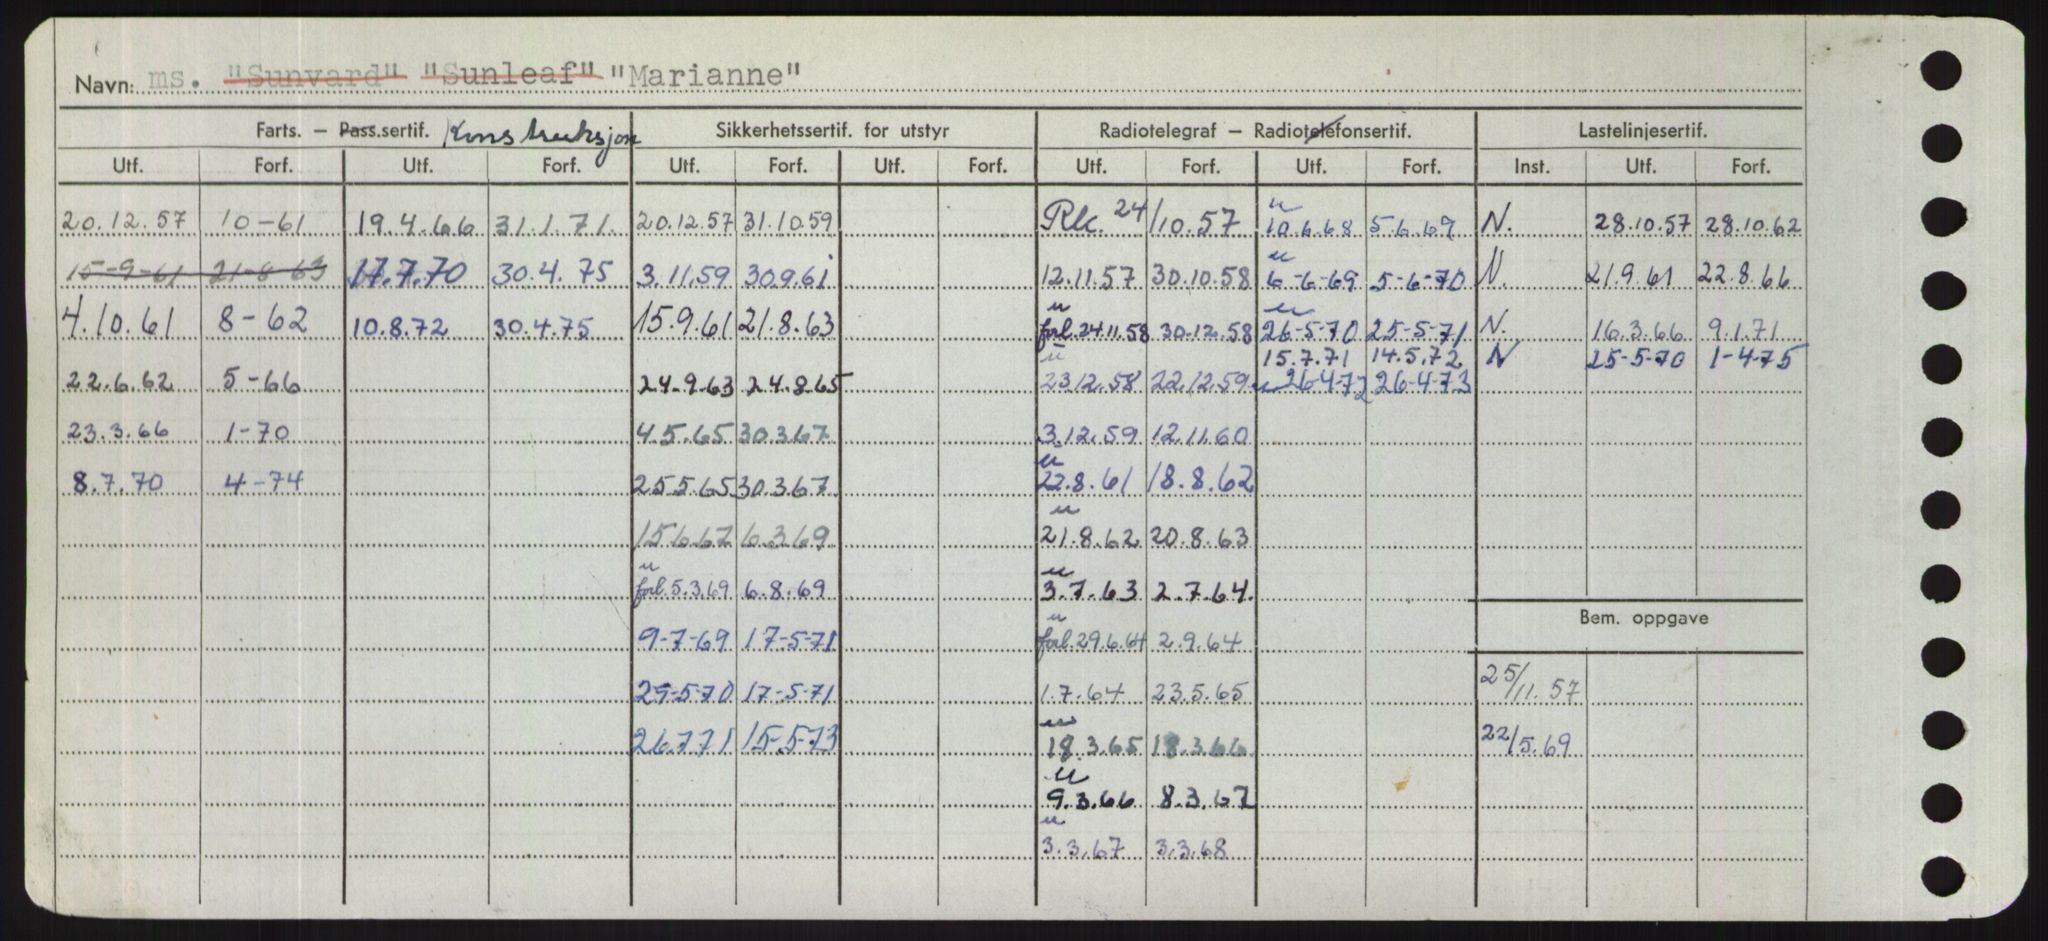 Navn: ms. "Sunvard" "Sunleaf" "Marianne"
Farts. – Pass.sertif. Konstruksjon Sikkerhetssertif. for utstyr Radiotelegraf – Radiotelefonsertif. Lastelinjesertif.
Utf. Forf. Utf. Forf. Utf. Forf. Utf. Forf. Utf. Forf. Utf. Forf. Inst. Utf. Forf.
20.12.57 10-61 19.4.66 31.1.71. 20.12.57 31.10.59 Rk. 24/10.57 u 10.6.68 5.6.69 N. 28.10.57 28.10.62
15-9-61 21-8-63 17.7.70 30.4.75 3.11.59 30.9.61 12.11.57 30.10.58 u 6-6-69 5-6-70 N. 21.9.61 22.8.66
4.10.61 8-62 10.8.72 30.4.75 15.9.61 21.8.63 u forl. 24.11.58 30.12.58 u 26-5-70 25-5-71 N. 16.3.66 9.1.71
15.7.71 14.5.72 N 25-5-70 1-4-75
22.6.62 5-66 24-9-63 24.8.65 u 23.12.58 22.12.59 u 26-4-72 26-4-73
23.3.66 1-70 4.5.65 30.3.67 3.12.59 12.11.60
8.7.70 4-74 25.5.65 30.3.67 u 22.8.61 18.8.62
15.6.67 6.3.69 u 21.8.62 20.8.63
u forl. 5.3.69 6.8.69 u 3.7.63 2.7.64.
Bem. oppgave
9-7-69 17-5-71 u forl. 29.6.64 2.9.64
29-5-70 17-5-71 1.7.64 23.5.65 25/11.57
26.7.71 15-5-73 u 18.3.65 18.3.66 22/5.69
u 9.3.66 8.3.67
u 3.3.67 3.3.68